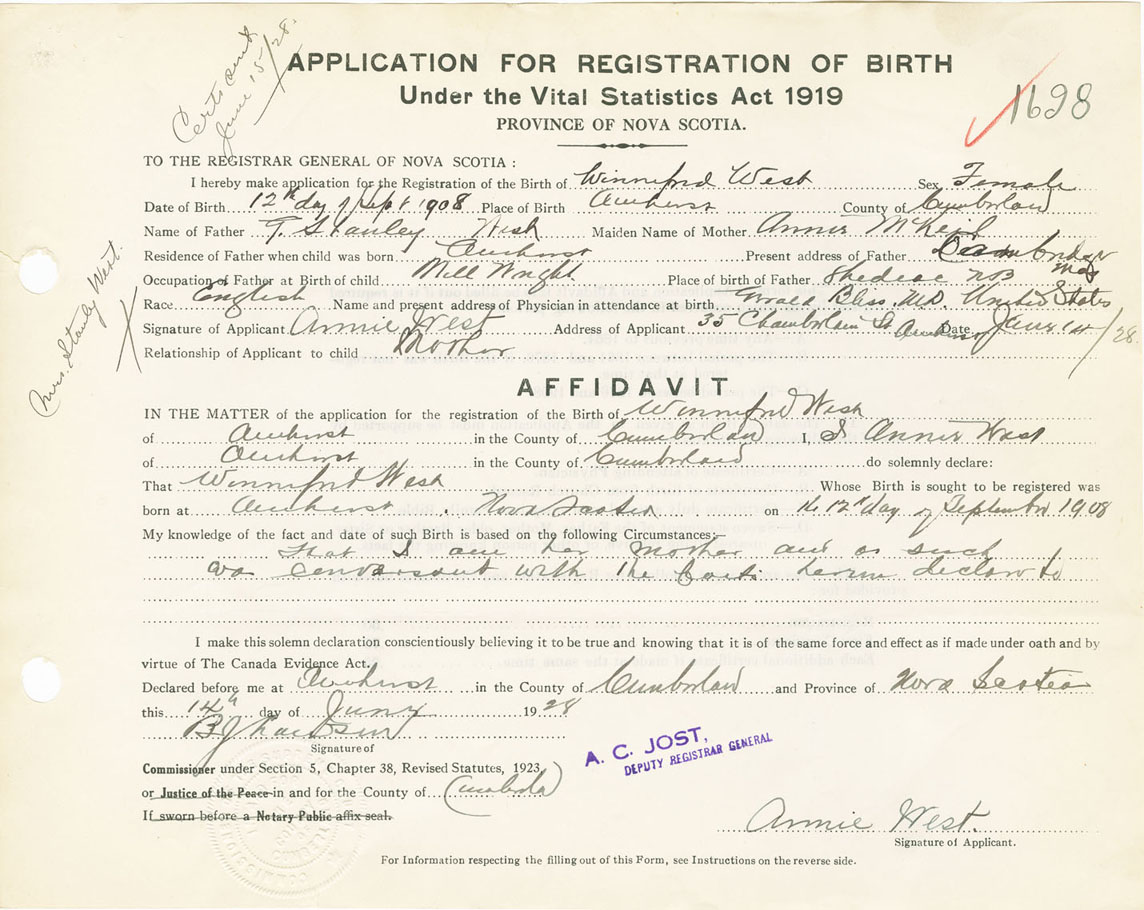 Certs sent
June 15/28.
APPLICATION FOR REGISTRATION OF BIRTH
Under the Vital Statistics Act 1919
PROVINCE OF NOVA SCOTIA.
1698
TO THE REGISTRAR GENERAL OF NOVA SCOTIA :
I hereby make application for the Registration of the Birth of Winnifred West Sex Female
Date of Birth 12th day of Sept 1908 Place of Birth Amherst County of Cumberland
Name of Father T. Stanley West Maiden Name of Mother Annie McKeil
Residence of Father when child was born Amherst Present address of Father Cambridge Mass
Occupation of Father at Birth of child Mill Wright Place of birth of Father Shediac NB
Race English Name and present address of Physician in attendance at birth Bliss, MD. United States
Signature of Applicant Annie West Address of Applicant 35 Chamberlain St Amherst Date June 14/28.
Relationship of Applicant to child Mother
Mrs. Stanley West.
AFFIDAVIT
IN THE MATTER of the application for the registration of the Birth of Winnifred West
of Amherst in the County of Cumberland I, I Annie West
of Amherst in the County of Cumberland do solemnly declare:
That Winnifred West Whose Birth is sought to be registered was
born at Amherst, Nova Scotia on the 12th day of September 1908
My knowledge of the fact and date of such Birth is based on the following Circumstances:—
That I am her Mother and as such
was conversant with the facts herein declared to
I make this solemn declaration conscientiously believing it to be true and knowing that it is of the same force and effect as if made under oath and by
virtue of The Canada Evidence Act.
Declared before me at Amherst in the County of Cumberland and Province of Nova Scotia
this 14th day of June 1928
Signature of
Commissioner under Section 5, Chapter 38, Revised Statutes, 1923
or Justice of the Peace in and for the County of Cumberland
If sworn before a Notary Public affix seal.
A. C. JOST,
DEPUTY REGISTRAR GENERAL
Annie West.
Signature of Applicant.
For Information respecting the filling out of this Form, see Instructions on the reverse side.